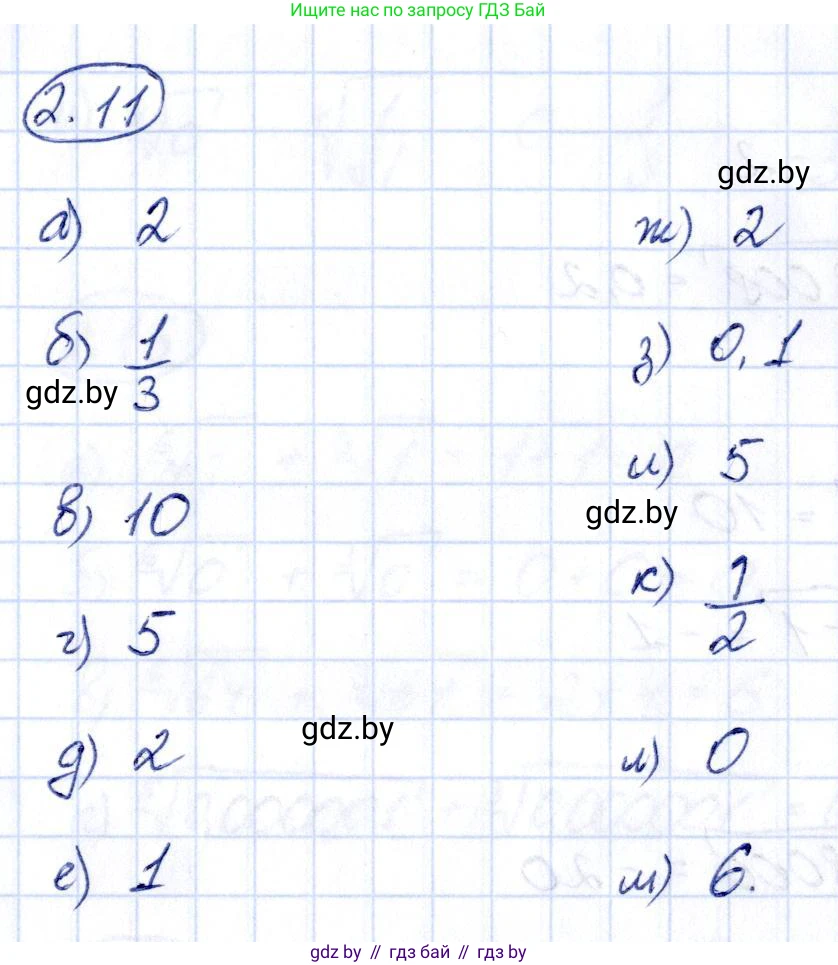 Ищите нас по запросу ГДЗ Бай
2.11
gdz.by
а) 2
ж) 2
б) 1/3
з) 0,1
gdz.by
и) 5
в) 10
gdz.by
к) 1/2
г) 5
gdz.by
д) 2
л) 0
е) 1
м) 6.
gdz.by // гдз бай // gdz.by